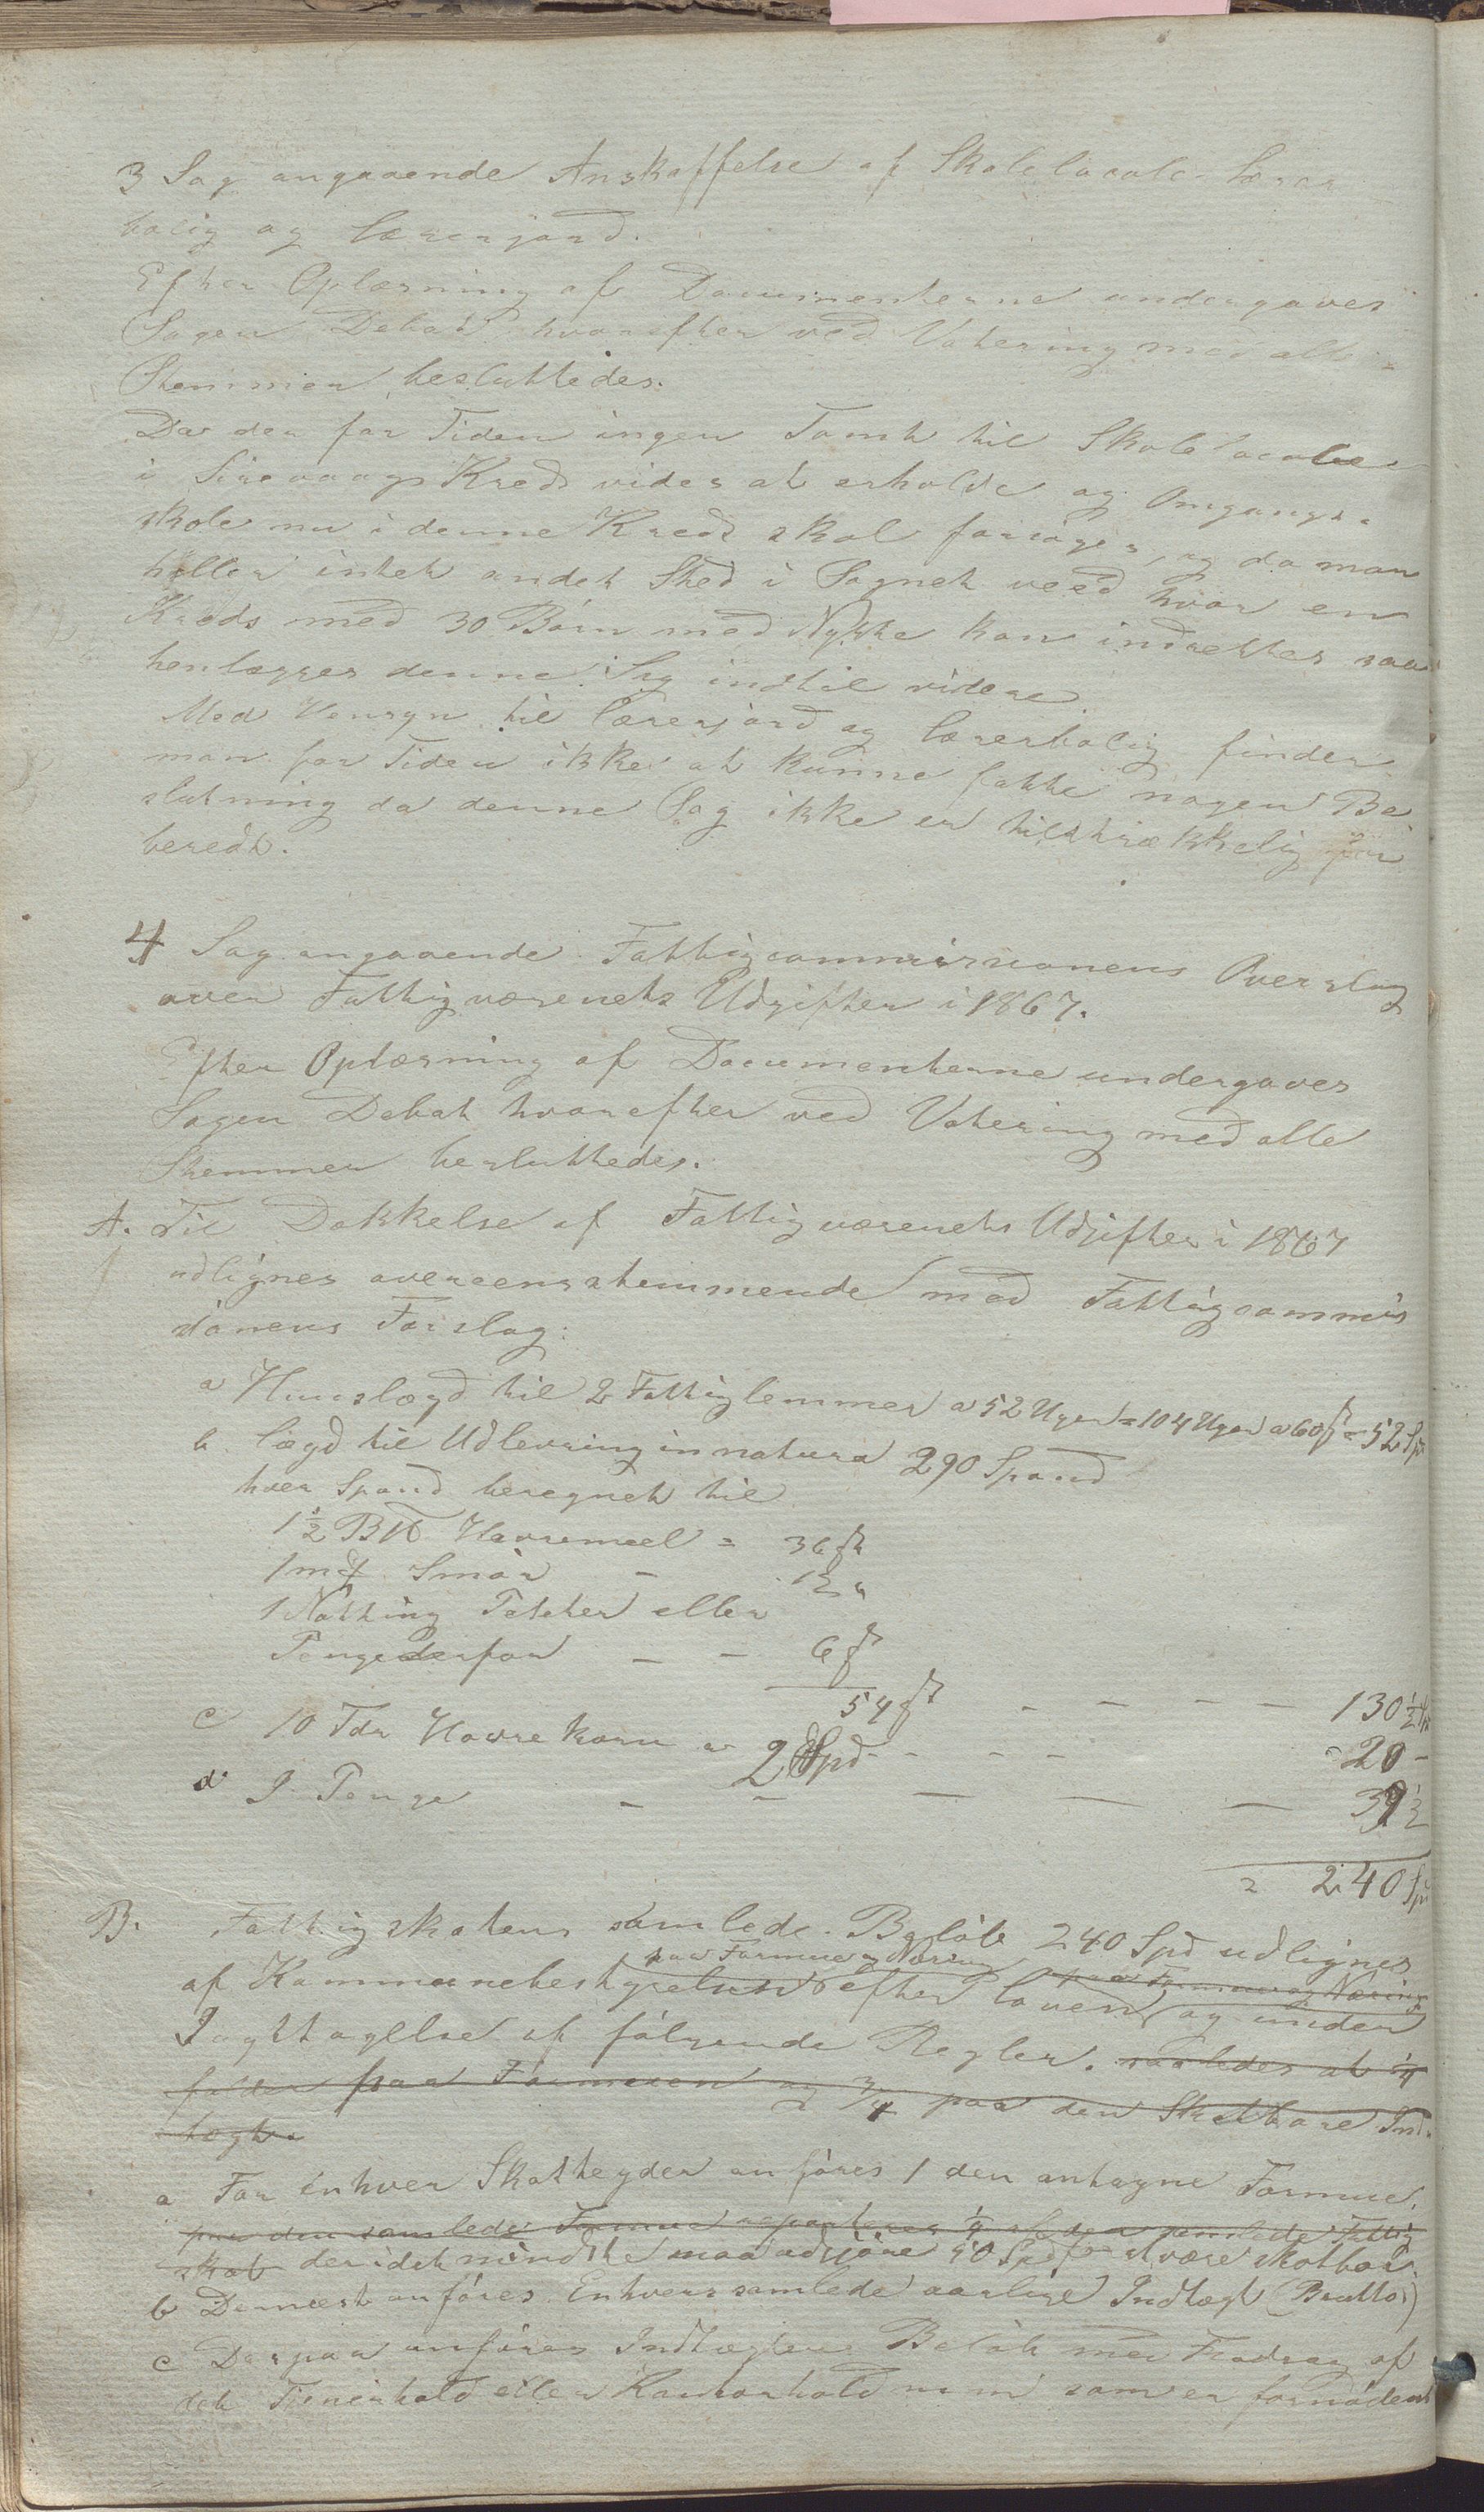 3 Sag angaaende Anskaffelse af Skolelocale Lærer
bolig og Lærerjord.
Efter Oplæsning af Documenterne undergaves
Sagen Debat hvorefter ved Votering med alle
Stemmer besluttedes.
Da der for Tiden ingen Tomt til Skolelocale
i Sirevaags Kreds vides at erholde og Omgangs-
skole nu i denne Kreds skal forsøges, og da man
heller intet andet Sted i Sognet veed hvor en
Kreds med 30 Børn med Nytte kan indrettes saa
henlægges denne Sag indtil videre.
Med Hensyn til Lærerjord og Lærerbolig finder
man for Tiden ikke at kunne fatte nogen Be
slutning da denne Sag ikke er tilstrækkelig for
beredt.
4 Sag angaaende Fattigcommissionens Overslag
over Fattigvæsenets Udgifter i 1867.
Efter Oplæsning af Documenterne undergaves
Sagen Debat hvorefter ved Votering med alle
Stemmer besluttedes.
A. Til Dækkelse af Fattigvæsenets Udgifter i 1867
udlignes overeensstemmende med Fattigcommis
sionens Forslag:
a Huuslægd til 2 Fattiglemmer a 52 Uger = 104 Uger a 60 ß = 52 Spd
b. Lægd til Udlevring in natura 290 Spand
hver Spand beregnet til
1 1/2 B℔ Havremeel = 36 ß
1 mk Smør - 12 "
1 Nötting Poteter eller
Penge derfor - - 6 ß
54 ß - - - - 130 1/2
c 10 Tdr Havrekorn a 2 Spd - - - - 20 -
d. I Penge - - - - - 37 1/2
= 240 Spd
B. Fattigskatens samlede Beløb 240 Spd udlignes
paa Formue og Næring
af Kommunebestyrelsen efter Loven paa Formue og Næring og under
Iagttagelse af følgende Regler. saaledes at 1/4
falder paa Formuen og 3/4 paa den Skatbare Ind-
tægt.
a For Enhver Skatteyder anføres 1 den antagne Formue,
paa den samlede Formue reparteres 1/4 af den samlede Fattig
skat der i det mindste maa udgjøre 50 Spd for at være skatbar.
b Dernæst anføres Enhvers samlede aarlige Indtægt (Brutto)
c Derpaa anføres Indtægtens Beløb med Fradrag af
det Tjenerhold eller Kontorhold m.m. som er fornødent